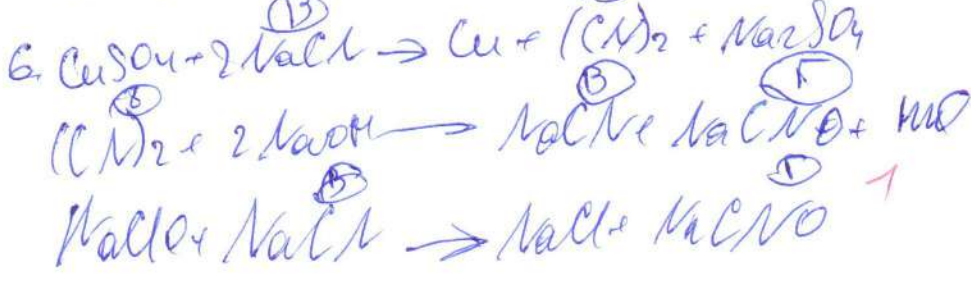 6. CuSO4 + 2NaCN → Cu + (CN)2 + Na2SO4
(CN)2 + 2NaOH → NaCN + NaCNO + H2O
NaClO + NaCN → NaCl + NaCNO
1